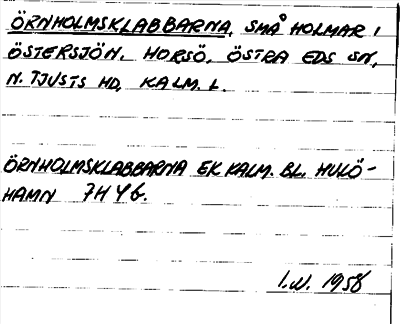 ÖRNHOLMSKLABBARNA, SMÅ HOLMAR I
ÖSTERSJÖN. HORSÖ, ÖSTRA EDS SN,
N. TJUSTS HD, KALM. L.
ÖRNHOLMSKLABBARNA EK KALM. BL. HULÖ-
HAMN 7H 4 b.
I.W. 1958